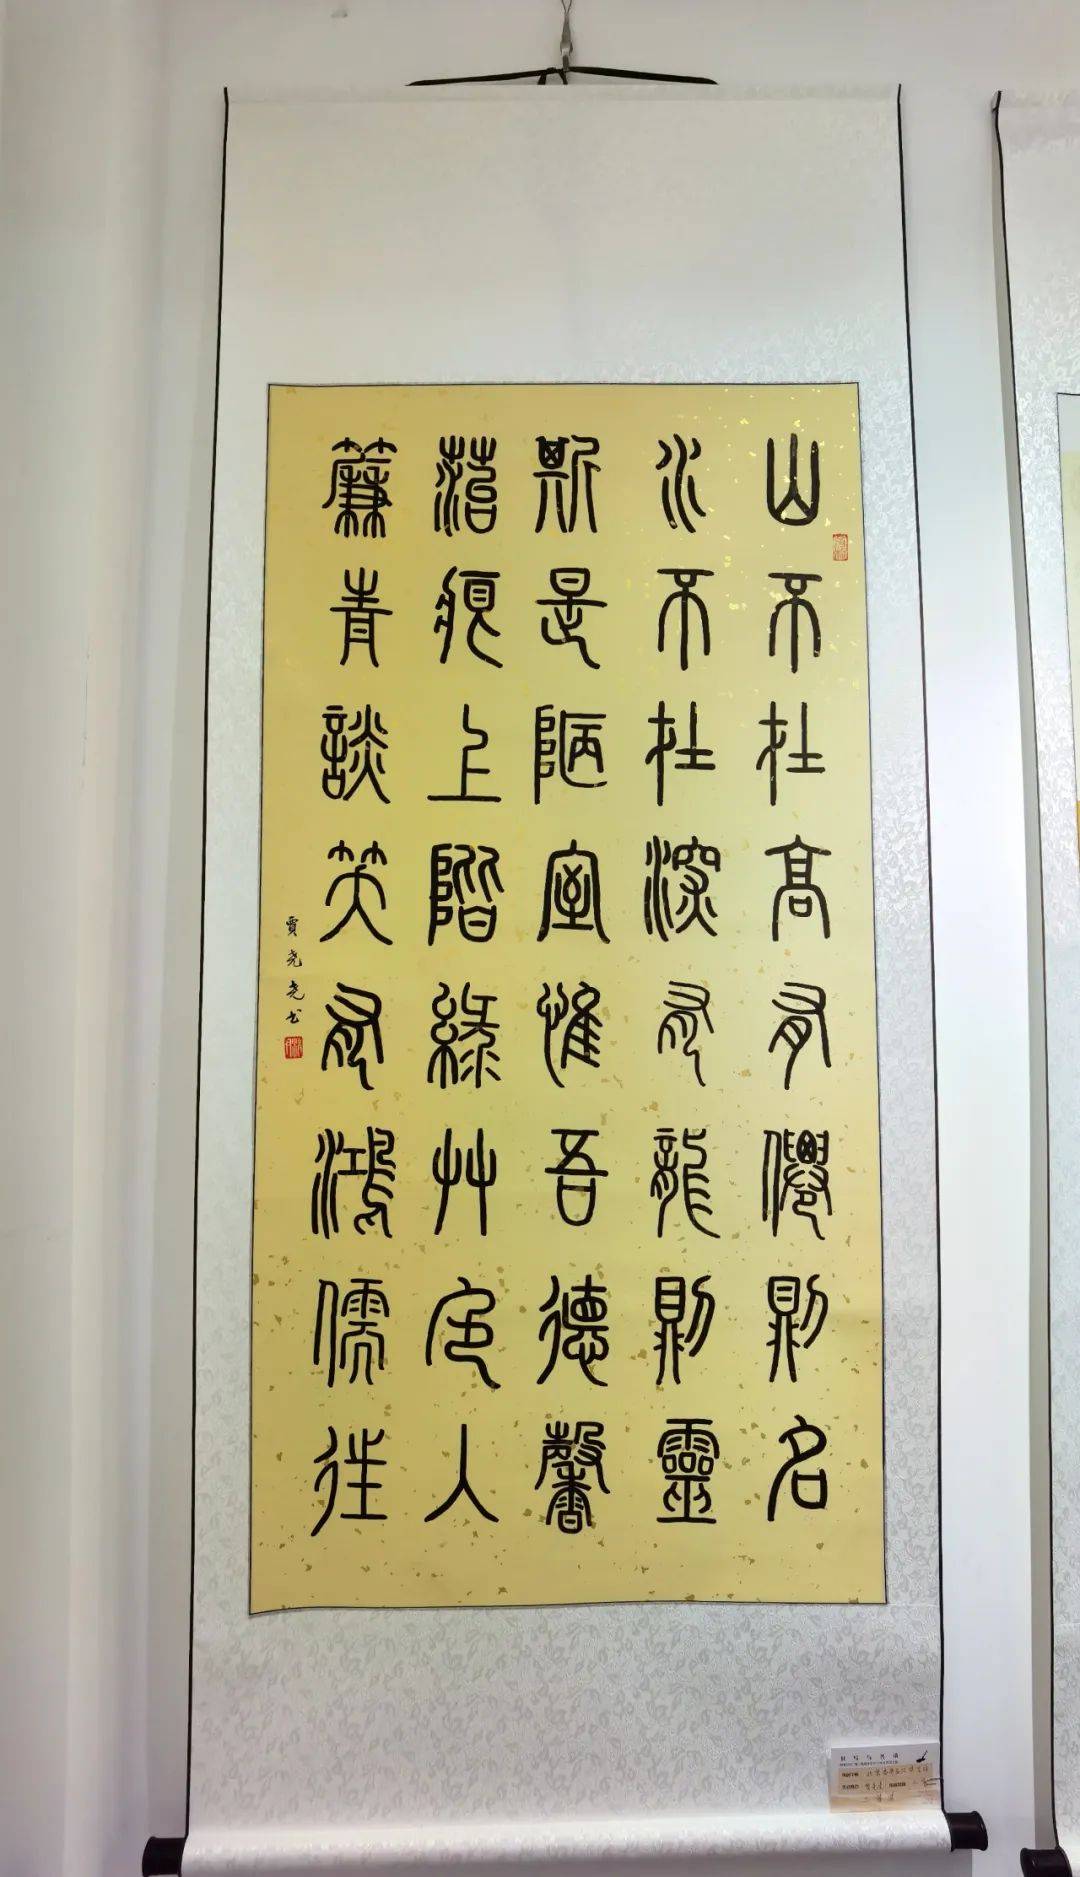 山不在高有僊則名
水不在深有龍則靈
斯是陋室惟吾德馨
菭痕上階綠艸色人
簾青談笑有鴻儒往
賈尧尧书